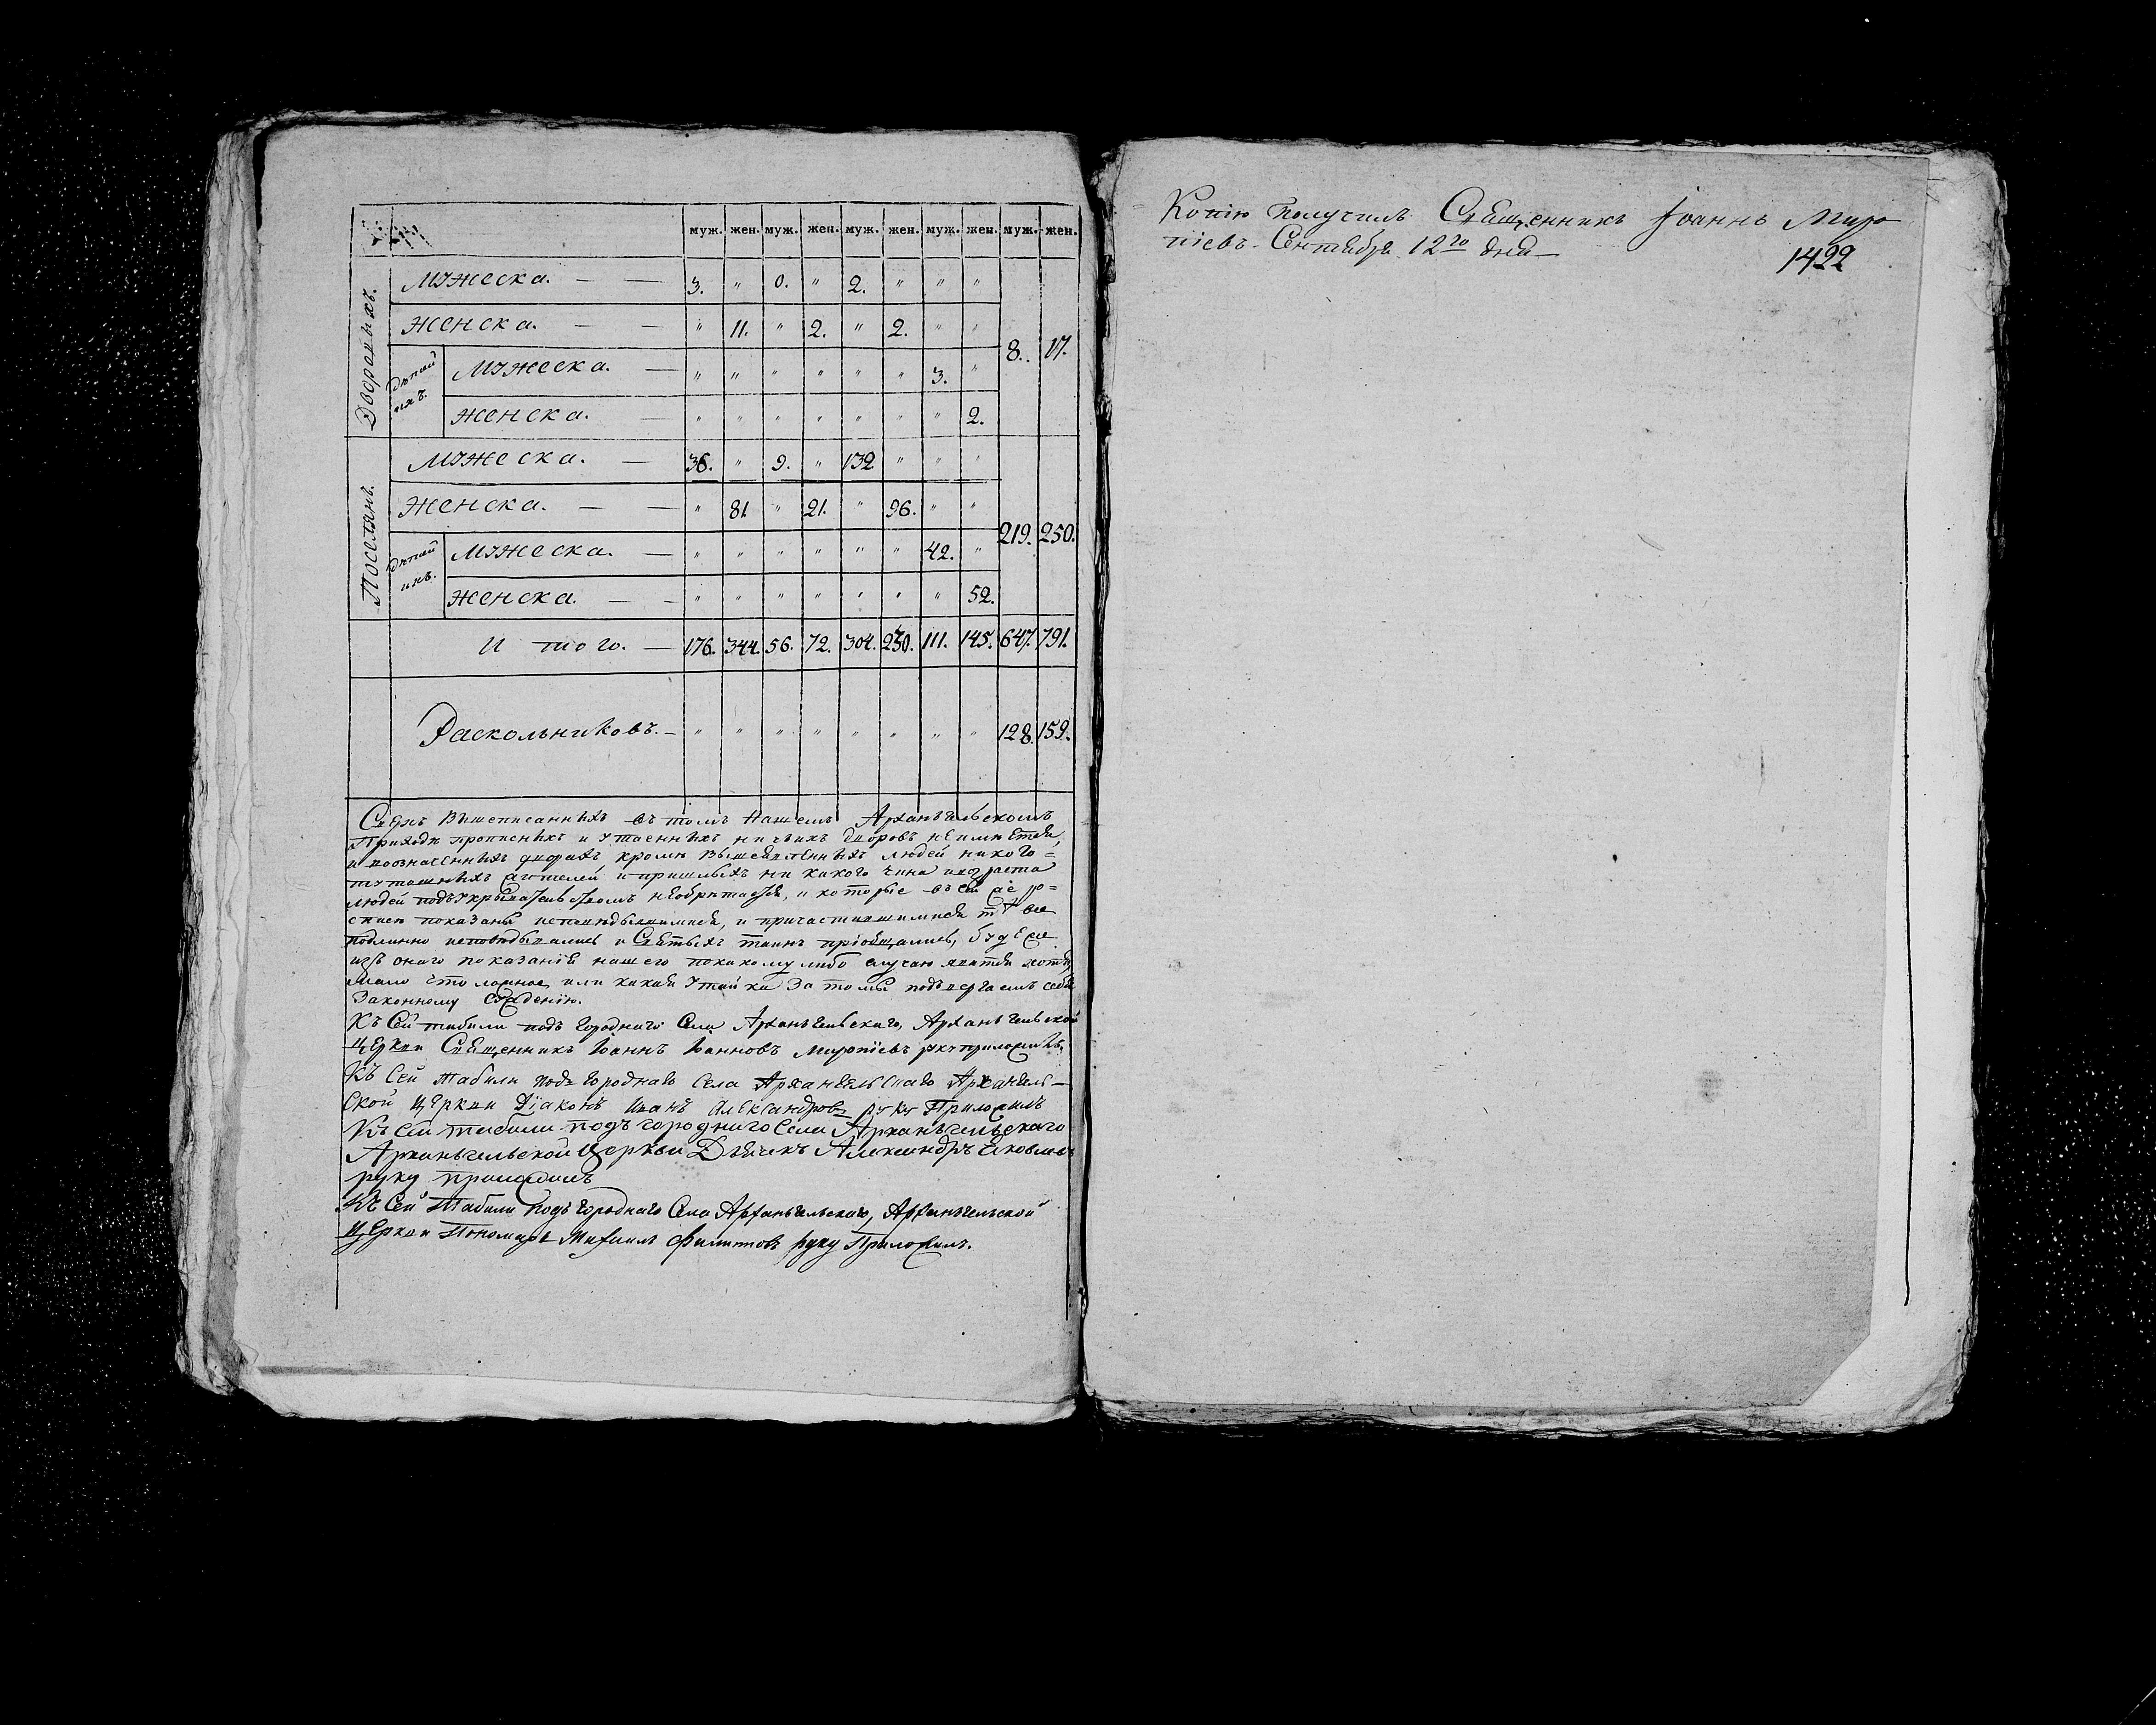 муж. жен. муж. жен. муж. жен. муж. жен. муж. жен.
Дворовыхъ.
Мужеска. — — 3. " 0. " 2. " " "
Женска. — — " 11. " 2. " 2. " "
8. 17.
дѣтей ихъ.
Мужеска. — " " " " " " 3. "
Женска. — " " " " " " " 2.
Поселянъ.
Мужеска. — 36. " 9. " 132 " " "
Женска. — — " 81. " 21. " 96. " "
219. 250.
дѣтей ихъ.
Мужеска. — " " " " " " 42. "
Женска. — — " " " " " " " 52.
И того. — 176. 344. 56. 72. 304. 230. 111. 145. 647. 791.
Раскольниковъ. — " " " " " " " " 128. 159.
Сверхъ вышеписанныхъ въ томъ нашемъ Архангельскомъ
Приходѣ прописныхъ и утаенныхъ ни чьихъ дворовъ неимѣется,
и воозначенныхъ дворахъ, кромѣ вышеявленныхъ людей никого=
тутошнихъ жителей и пришлыхъ ни какого чина и возраста
людей подъ укрывательствомъ необрѣтается, и которые въ сей же ро=
списи показаны исповѣдывшимися, и причастившимися тѣ все
подлинно исповѣдывались и Святыхъ таинъ пріобщались, буде же
изъ онаго показанія нашего покакому либо случаю явится хотя
мало что ложное или какая утайка за то мы подвергаемъ себя
Законному сужденію.
Къ Сей табели подъ городнаго Села Архангельскаго, Архангельской
церкви Священникъ Іоаннъ Іоанновъ Миропіевъ руку приложилъ.
Къ Сей табели подъ городнаго села Архангельскаго Архангель—
ской церкви Діаконъ Иванъ Александровъ руку Приложилъ
Къ Сей табели подъ городнаго Села Архангельскаго
Архангельской Церкви Дьячекъ Александръ Яковлевъ
руку приложилъ
Къ Сей Табели Подъ городнаго Села Архангельскаго, Архангельской
Церкви Пономарь Михаилъ Филиповъ руку Приложилъ.
Копію получилъ Священникъ Іоаннъ Миро
піевъ Сентября 12го дня —
1422